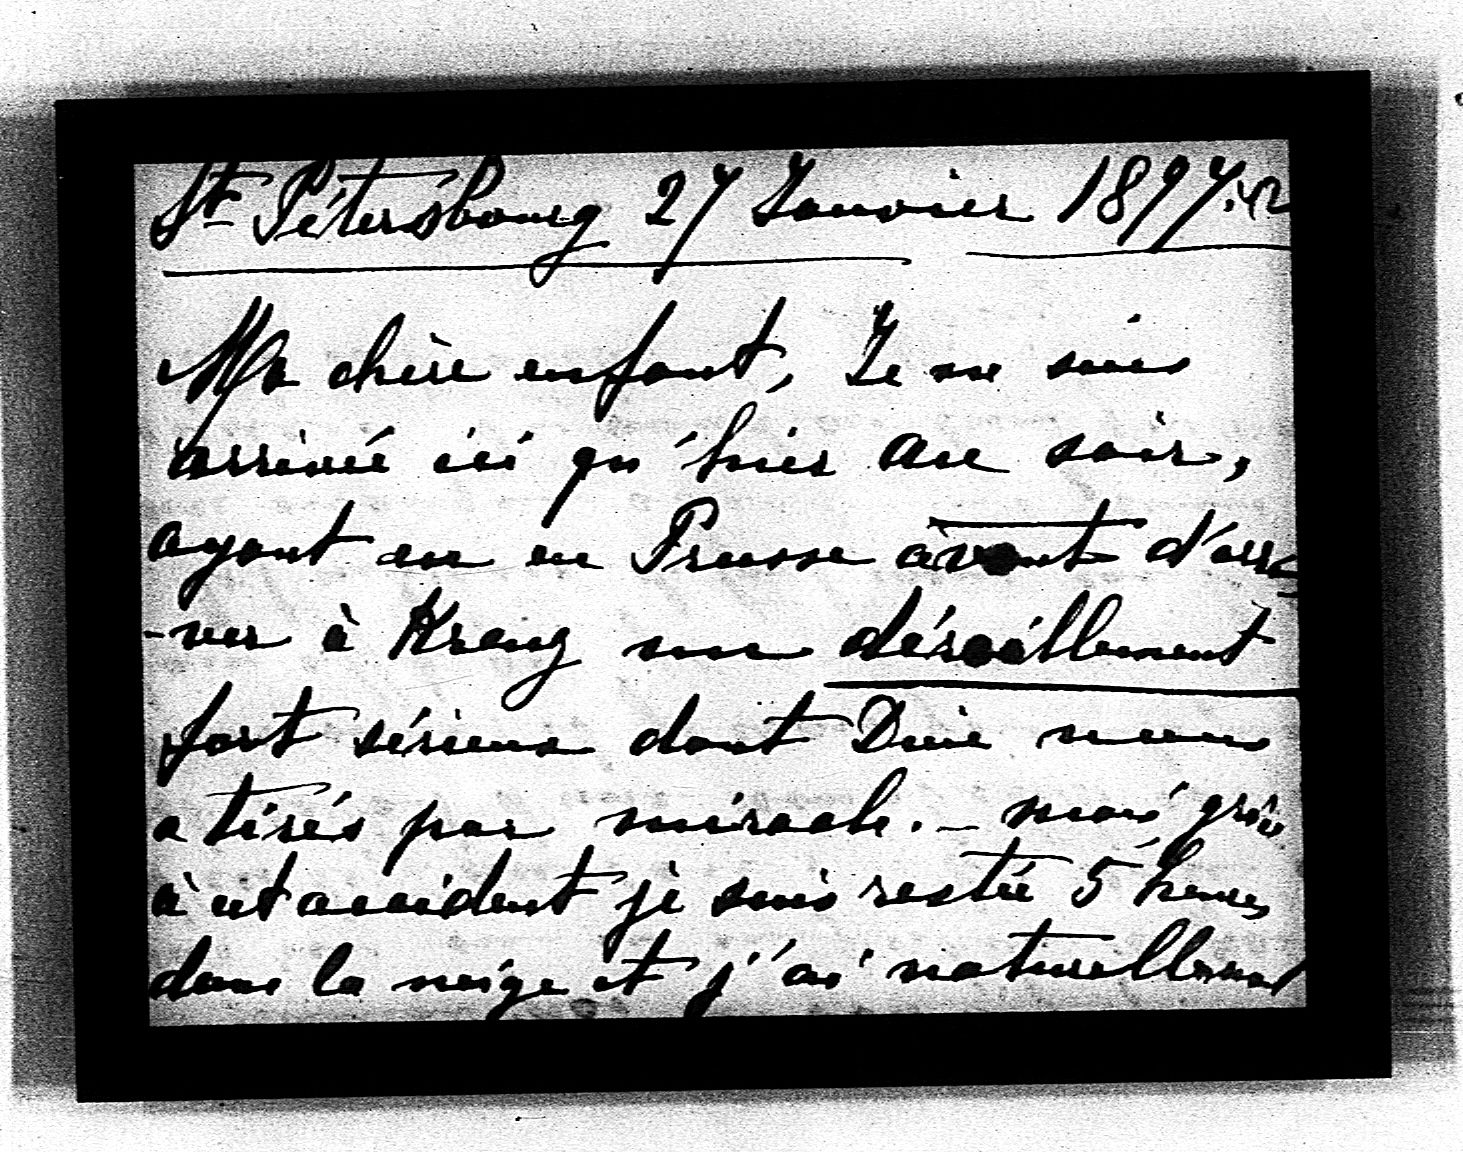 St Pétersbourg 27 Janvier 1897.
Ma chère enfant, Je ne suis
arrivée ici qu'hier au soir,
ayant eu en Prusse avant d'arri
-ver à Kreuz un déraillement
fort sérieux dont Dieu nous
a tirés par miracle. - mais grâce
à cet accident je suis restée 5 heures
dans la neige et j'ai naturellement